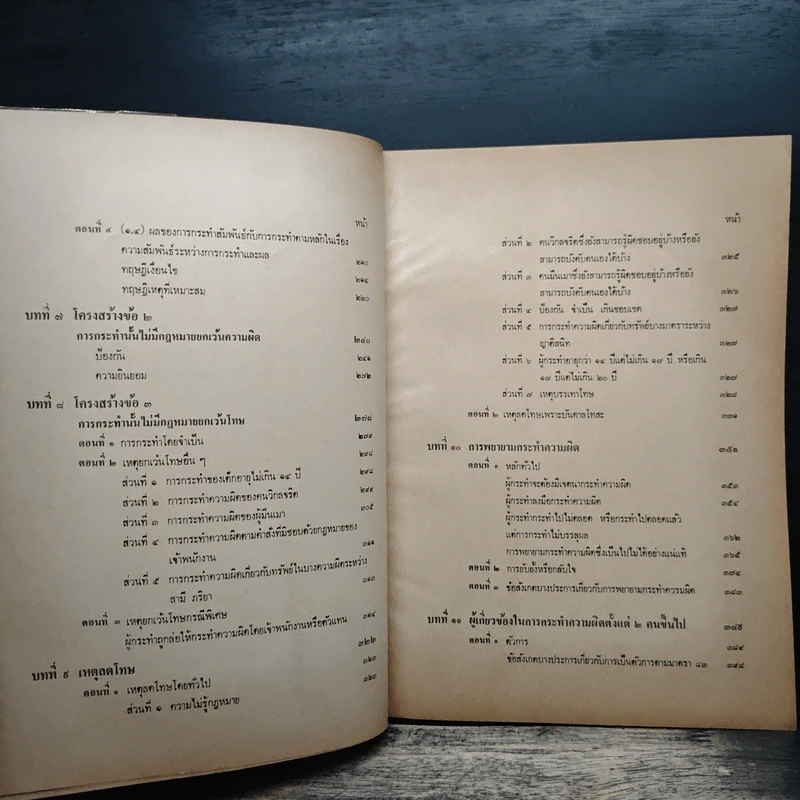 หน้า
ตอนที่ ๔ (๑.๔) ผลของการกระทำสัมพันธ์กับการกระทำตามหลักในเรื่อง
ความสัมพันธ์ระหว่างการกระทำและผล ๒๑๐
ทฤษฎีเงื่อนไข ๒๑๔
ทฤษฎีเหตุที่เหมาะสม ๒๒๐
บทที่ ๗ โครงสร้างข้อ ๒
การกระทำนั้นไม่มีกฎหมายยกเว้นความผิด ๒๔๐
ป้องกัน ๒๔๑
ความยินยอม ๒๗๒
บทที่ ๘ โครงสร้างข้อ ๓
การกระทำนั้นไม่มีกฎหมายยกเว้นโทษ ๒๗๘
ตอนที่ ๑ การกระทำโดยจำเป็น ๒๗๙
ตอนที่ ๒ เหตุยกเว้นโทษอื่น ๆ ๒๙๘
ส่วนที่ ๑ การกระทำของเด็กอายุไม่เกิน ๑๔ ปี ๒๙๘
ส่วนที่ ๒ การกระทำความผิดของคนวิกลจริต ๒๙๙
ส่วนที่ ๓ การกระทำความผิดของผู้มึนเมา ๓๐๕
ส่วนที่ ๔ การกระทำความผิดตามคำสั่งที่มิชอบด้วยกฎหมายของ
เจ้าพนักงาน ๓๑๑
ส่วนที่ ๕ การกระทำความผิดเกี่ยวกับทรัพย์ในบางความผิดระหว่าง
สามี ภริยา ๓๑๓
ตอนที่ ๓ เหตุยกเว้นโทษกรณีพิเศษ
ผู้กระทำถูกล่อให้กระทำความผิดโดยเจ้าพนักงานหรือตัวแทน ๓๑๔
บทที่ ๙ เหตุลดโทษ ๓๒๒
ตอนที่ ๑ เหตุลดโทษโดยทั่วไป ๓๒๓
ส่วนที่ ๑ ความไม่รู้กฎหมาย ๓๒๓
หน้า
ส่วนที่ ๒ คนวิกลจริตซึ่งยังสามารถรู้ผิดชอบอยู่บ้างหรือยัง
สามารถบังคับตนเองได้บ้าง ๓๒๕
ส่วนที่ ๓ คนมึนเมาซึ่งยังสามารถรู้ผิดชอบอยู่บ้างหรือยัง
สามารถบังคับตนเองได้บ้าง ๓๒๖
ส่วนที่ ๔ ป้องกัน จำเป็น เกินขอบเขต ๓๒๗
ส่วนที่ ๕ การกระทำความผิดเกี่ยวกับทรัพย์บางมาตราระหว่าง
ญาติสนิท ๓๒๗
ส่วนที่ ๖ ผู้กระทำอายุกว่า ๑๔ ปีแต่ไม่เกิน ๑๗ ปี หรือเกิน
๑๗ ปีแต่ไม่เกิน ๒๐ ปี ๓๒๗
ส่วนที่ ๗ เหตุบรรเทาโทษ ๓๒๘
ตอนที่ ๒ เหตุลดโทษเพราะบันดาลโทสะ ๓๓๑
บทที่ ๑๐ การพยายามกระทำความผิด ๓๕๑
ตอนที่ ๑ หลักทั่วไป
ผู้กระทำจะต้องมีเจตนากระทำความผิด ๓๕๓
ผู้กระทำลงมือกระทำความผิด ๓๕๔
ผู้กระทำกระทำไปไม่ตลอด หรือกระทำไปตลอดแล้ว
แต่การกระทำไม่บรรลุผล ๓๖๒
การพยายามกระทำความผิดซึ่งเป็นไปไม่ได้อย่างแน่แท้ ๓๖๕
ตอนที่ ๒ การยับยั้งหรือกลับใจ ๓๗๔
ตอนที่ ๓ ข้อสังเกตบางประการเกี่ยวกับการพยายามกระทำความผิด ๓๘๓
บทที่ ๑๑ ผู้เกี่ยวข้องในการกระทำความผิดตั้งแต่ ๒ คนขึ้นไป ๓๘๘
ตอนที่ ๑ ตัวการ ๓๘๙
ข้อสังเกตบางประการเกี่ยวกับการเป็นตัวการตามมาตรา ๘๓ ๓๙๔